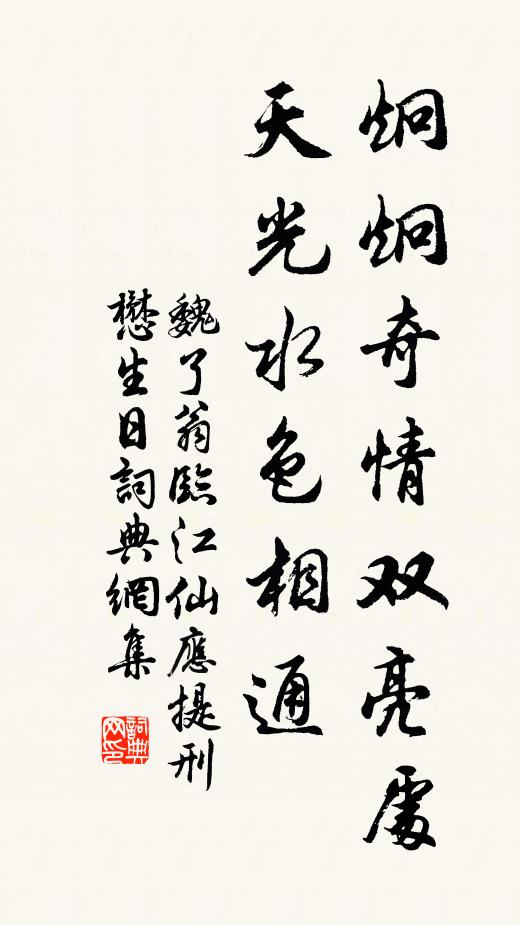 炯炯奇情双亮處
天光水色相通
魏了翁臨江仙應提刑
懋生日詞典網集
詞典
网印